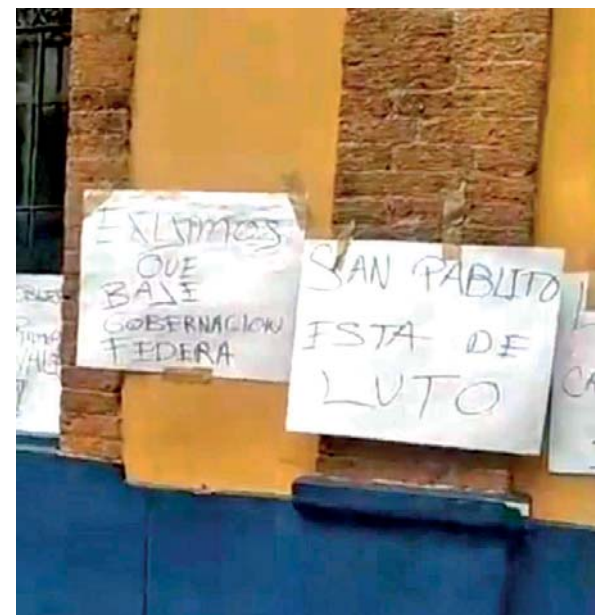 EXIJIMOS
QUE
BAJE
GOBERNACION
FEDERA
SAN PABLITO
ESTA DE
LUTO
CA